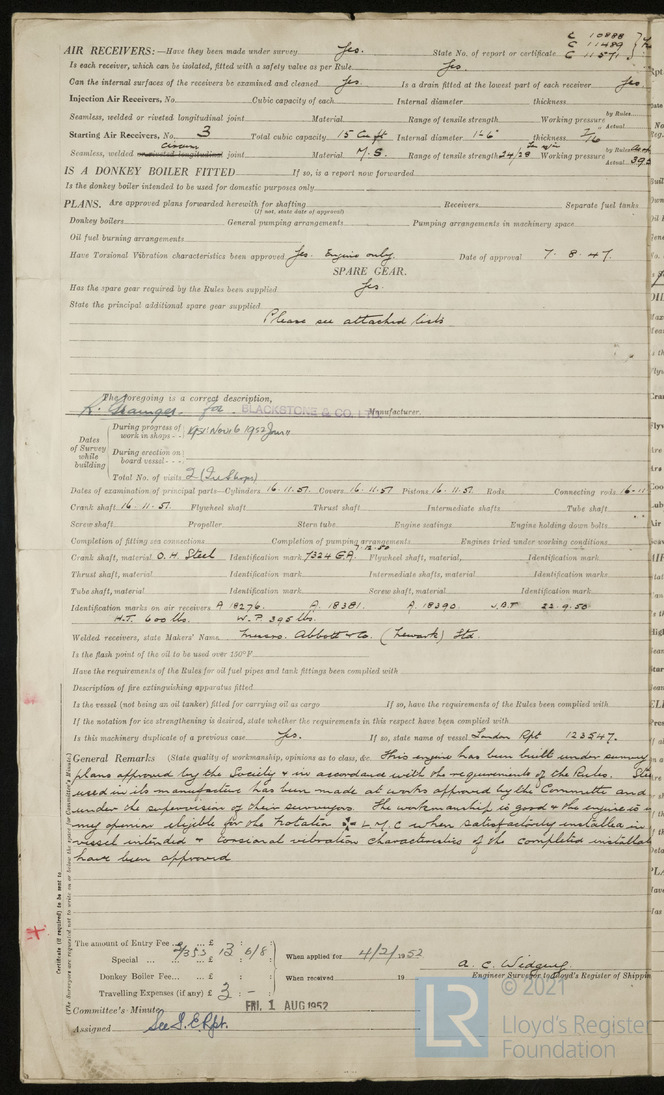 C 10888
C 11489
C 11571
AIR RECEIVERS:—Have they been made under survey Yes. State No. of report or certificate
Is each receiver, which can be isolated, fitted with a safety valve as per Rule Yes.
Can the internal surfaces of the receivers be examined and cleaned Yes Is a drain fitted at the lowest part of each receiver Yes
Injection Air Receivers, No. Cubic capacity of each Internal diameter thickness
Seamless, welded or riveted longitudinal joint Material Range of tensile strength Working pressure by Rules Actual
Starting Air Receivers, No. 3 Total cubic capacity 15 Cu ft Internal diameter 1-6" thickness 7/16"
Seamless, welded or riveted longitudinal joint Material M.S. Range of tensile strength 24/28 Working pressure by Rules Actual
IS A DONKEY BOILER FITTED If so, is a report now forwarded
Is the donkey boiler intended to be used for domestic purposes only
PLANS. Are approved plans forwarded herewith for shafting Receivers Separate fuel tanks
(If not, state date of approval)
Donkey boilers General pumping arrangements Pumping arrangements in machinery space
Oil fuel burning arrangements
Have Torsional Vibration characteristics been approved Yes. Engine only. Date of approval 7. 8. 47.
SPARE GEAR.
Has the spare gear required by the Rules been supplied Yes.
State the principal additional spare gear supplied
Please see attached lists
The foregoing is a correct description,
for BLACKSTONE & CO. LTD. Manufacturer.
Dates of Survey while building
During progress of work in shops - - 1951 Nov 16 1952 Jan
During erection on board vessel - - -
Total No. of visits 2 (In Shops)
Dates of examination of principal parts—Cylinders 16. 11. 51. Covers 16. 11. 51 Pistons 16. 11. 51. Rods Connecting rods 16-11
Crank shaft 16. 11. 51. Flywheel shaft Thrust shaft Intermediate shafts Tube shaft
Screw shaft Propeller Stern tube Engine seatings Engine holding down bolts
Completion of fitting sea connections Completion of pumping arrangements Engines tried under working conditions
7.12.50
Crank shaft, material O.H. Steel Identification mark 7324 GA. Flywheel shaft, material, Identification mark
Thrust shaft, material Identification mark Intermediate shafts, material Identification marks
Tube shaft, material Identification mark Screw shaft, material Identification mark
Identification marks on air receivers A 18276. A. 18381. A. 18390. J.B.T 22. 9. 50
H.T. 600 lbs. W.P. 395 lbs.
Welded receivers, state Makers' Name Messrs. Abbott & Co. (Newark) Ltd.
Is the flash point of the oil to be used over 150°F
Have the requirements of the Rules for oil fuel pipes and tank fittings been complied with
Description of fire extinguishing apparatus fitted
Is the vessel (not being an oil tanker) fitted for carrying oil as cargo If so, have the requirements of the Rules been complied with
If the notation for ice strengthening is desired, state whether the requirements in this respect have been complied with
Is this machinery duplicate of a previous case Yes. If so, state name of vessel London Rpt 123547.
General Remarks (State quality of workmanship, opinions as to class, &c. This engine has been built under survey
plans approved by the Society & in accordance with the requirements of the Rules.
used in its manufacture has been made at works approved by the Committee and
under the supervision of their surveyors. The workmanship is good & the engine is in
my opinion eligible for the Notation L.M.C when satisfactorily installed in
vessel intended & torsional vibration characteristics of the completed
have been approved
Certificate (if required) to be sent to
(The Surveyors are requested not to write on or below the space for Committee's Minute.)
The amount of Entry Fee ... £ : :
Special ... £ 13 : 6/8 :
Donkey Boiler Fee... ... £ : :
Travelling Expenses (if any) £ 3 : – :
When applied for 4/2/1952
When received 19
A. C. Widgery
Engineer Surveyor to Lloyd's Register of Shipping
Committee's Minute FRI. 1 AUG 1952
Assigned See F.E. Rpt.
LR
© 2021
Lloyd's Register
Foundation